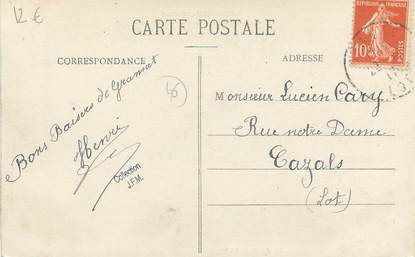 12 €
CARTE POSTALE
CORRESPONDANCE
ADRESSE
RÉPUBLIQUE FRANÇAISE
10
POSTES
46
Bons Baisers de Gramat
Henri
Collection
J.F.M.
Monsieur Lucien Cavy
Rue notre Dame
Cazals
(Lot)